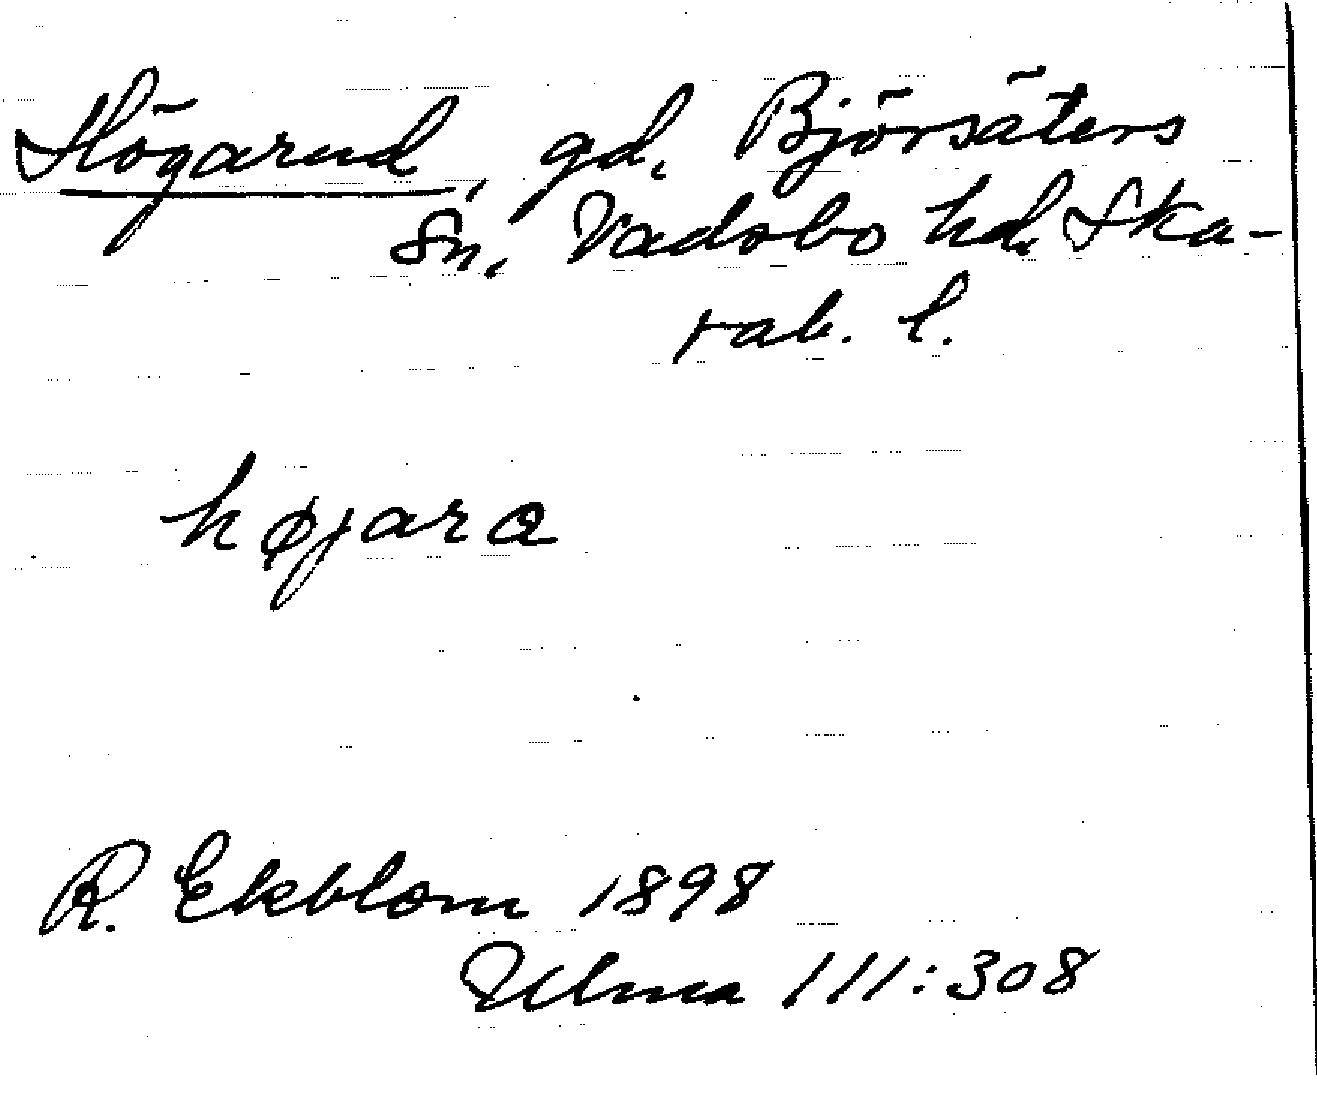 Högarud, gd. Björsäters
Sn. Vadsbo hd. Ska-
rab. l.
højara
R. Ekblom 1898
Ulma 111:308